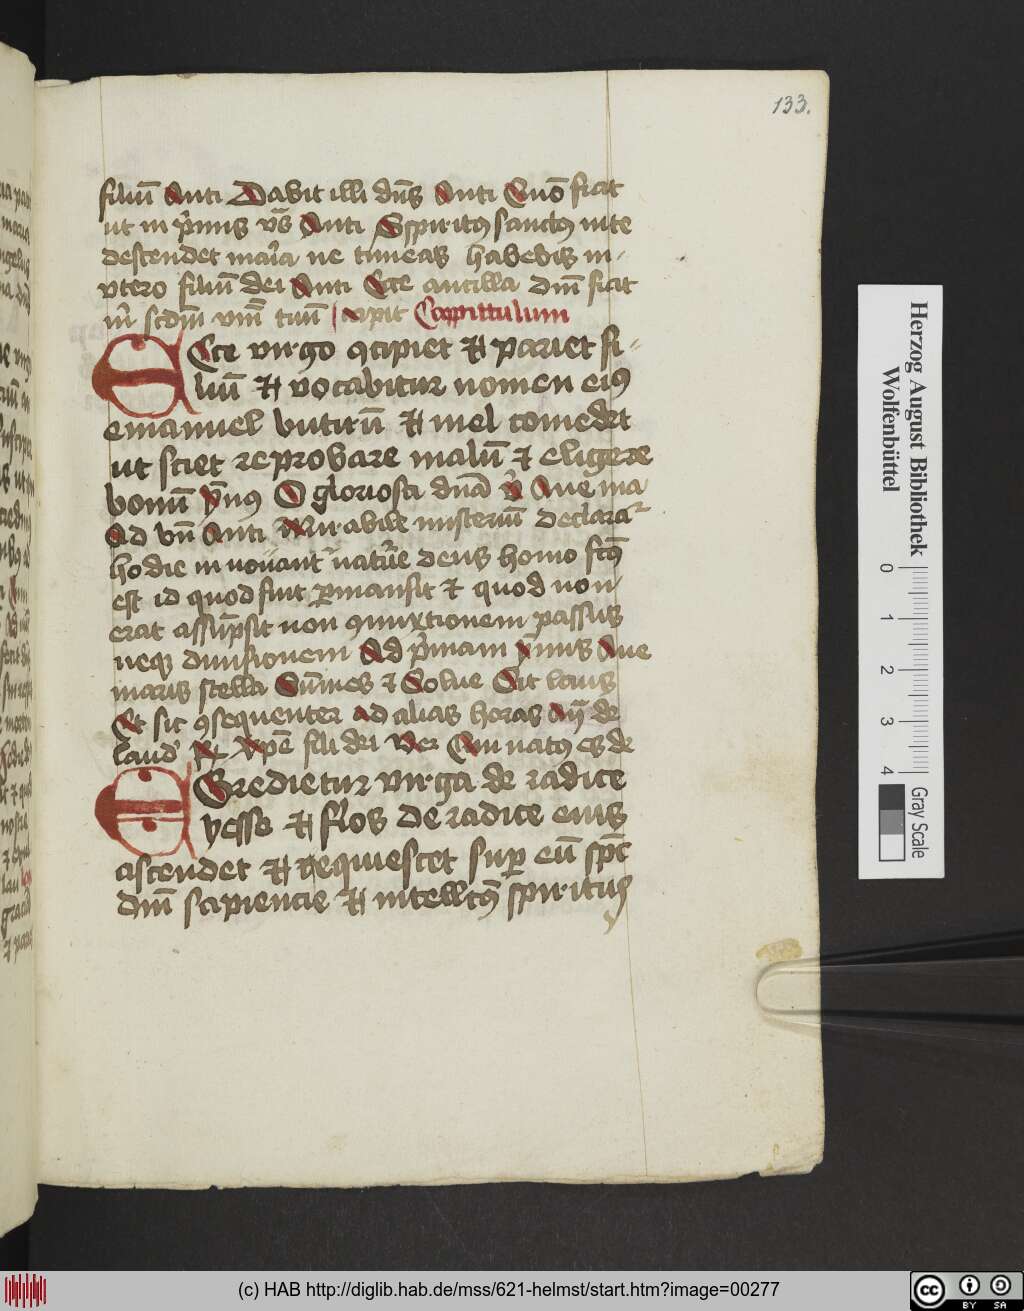 133.
filiū Anti Dabit illi dn̄s Anti Quō fiat
ut in p̄mis vs̄ Anti Sp̄piritus sanctus inte
descendet maīa ne timeas habebis in-
vtero filiū dei Anti Ecce ancilla dm̄ fiat
m̄ scdm̄ vm̄ tuū Cappittulum
Ecce virgo ꝯcipiet et pariet fi-
liū et vocabitur nomen eiꝰ
emanuel butirū et mel comedet
ut sciet reprobare malū et eligere
bonū ym̄nꝰ O gloriosa dnā v̄ Aue ma
Ad bn̄ Anti Mirabile misteriū declarat
hodie innouant᷑ natur̄e deus homo fctꝰ
est id quod fuit ꝑmansit et quod non
erat assūpsit non ꝯmixtionem passus
neqꝫ diuisionem Ad p̄mam ym̄nis Aue
maris stella Sum̄es et Solue Sit laus
Et sic ꝯsequenter ad alias horas de
laud' xp̄e fili dei ver Qui natꝰ es de
Egredietur virga de radice
yesse et flos de radice eius
ascendet et requiescet suꝑ eū sp̄c
dm̄ sapiencie et intellctꝰ spiritus
Herzog August Bibliothek
Wolfenbüttel
0 1 2 3 4
Gray Scale
(c) HAB http://diglib.hab.de/mss/621-helmst/start.htm?image=00277
cc BY SA